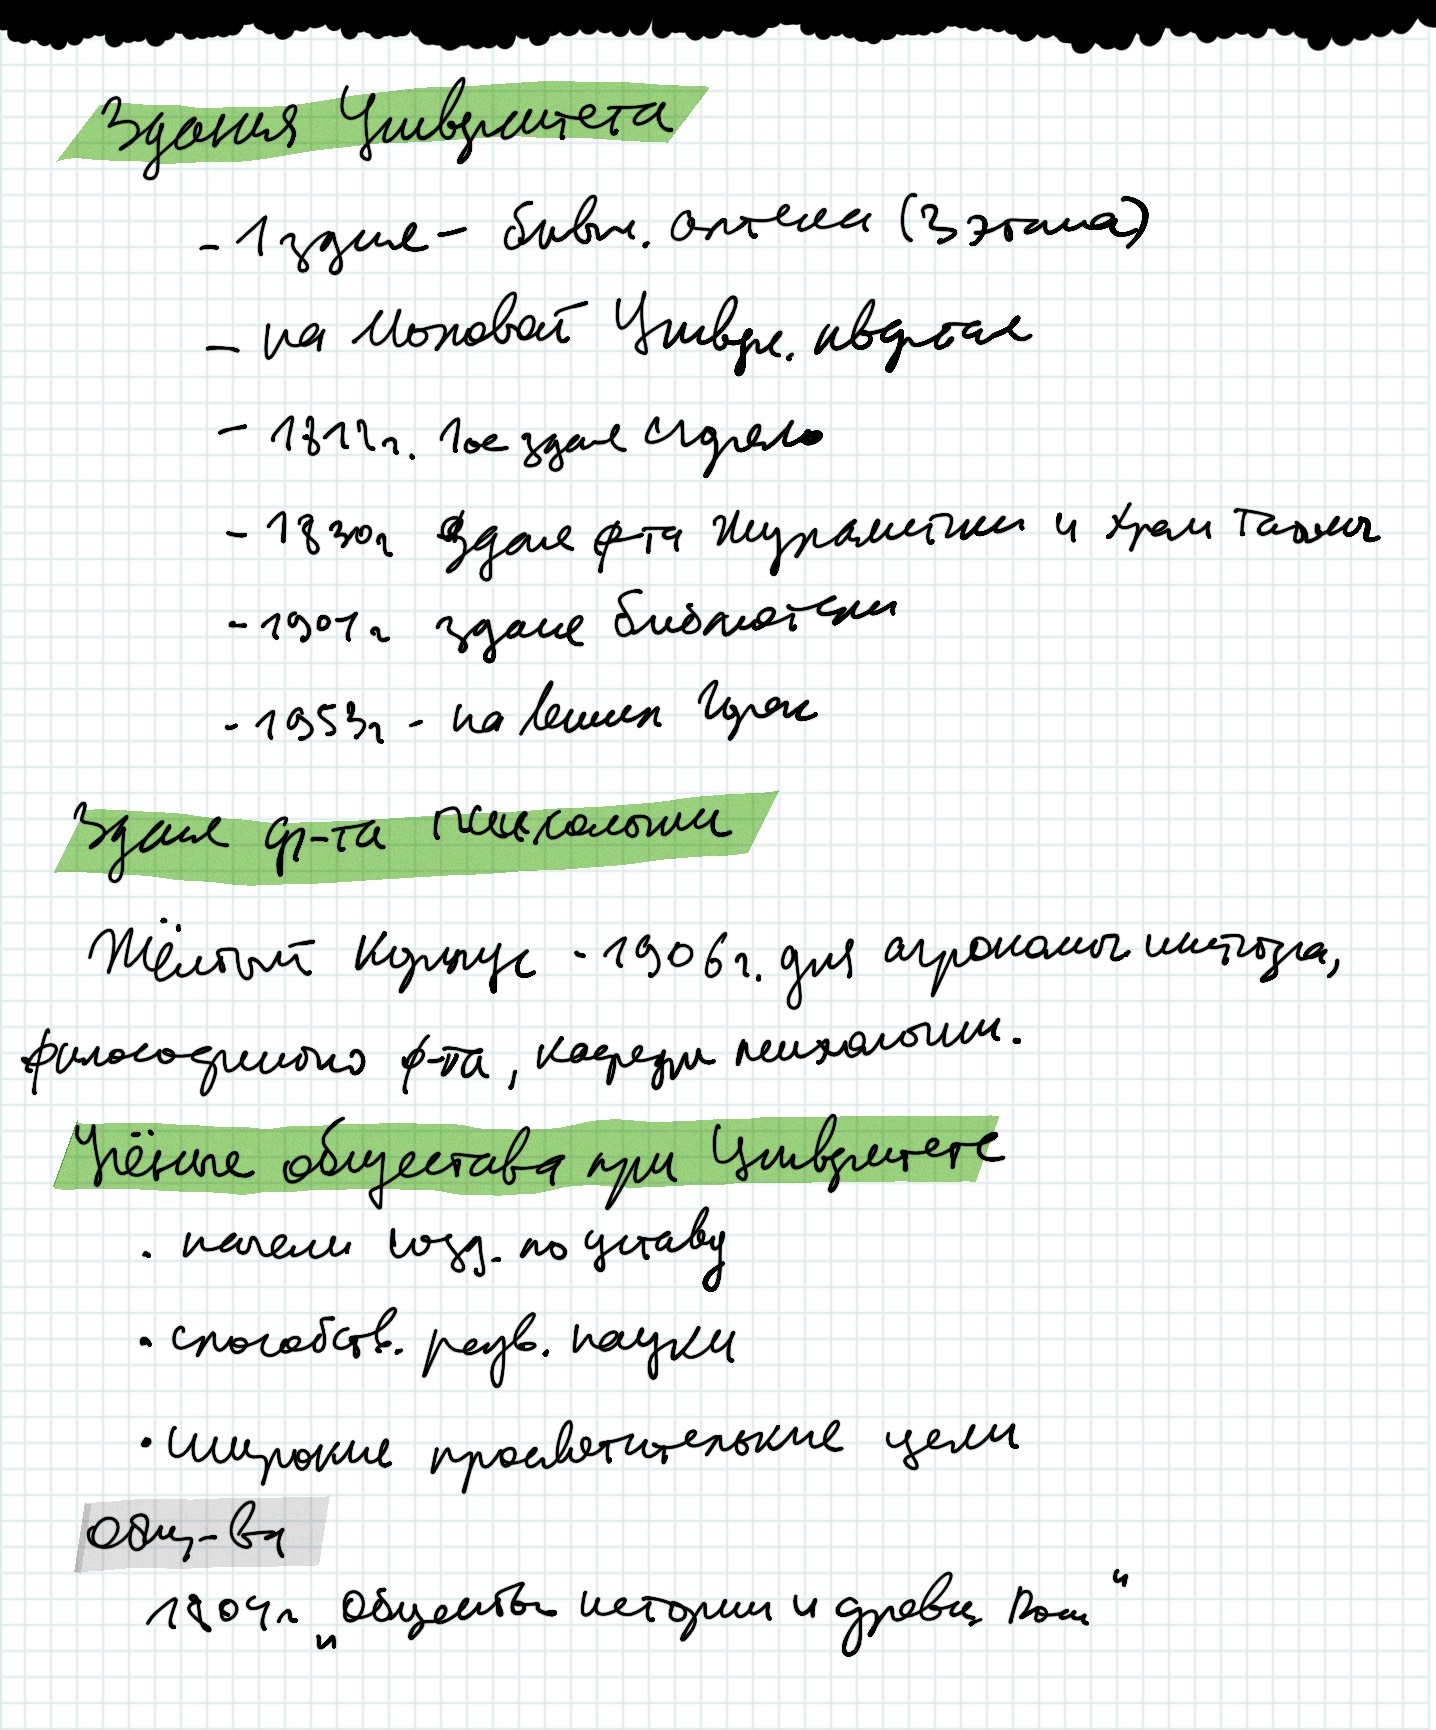 Здания Университета
- 1 здание - бывш. аптека (3 этажа)
- на Моховой Универ. квартал
- 1812г. 1ое здание сгорело
- 1830г здание ф-та Журналистики и Храм Татьяны
- 1901г здание библиотеки
- 1953г - на Ленин Горах
Здание ф-та психологии
Жёлтый Корпус - 1906г. для агрономич института,
философского ф-та, кафедры психологии.
Учёные общества при Университете
· начели созд. по уставу
· способств. разв. науки
· широкие просветительские цели
Общ-ва
1804г „Общество истории и древн. Росс"